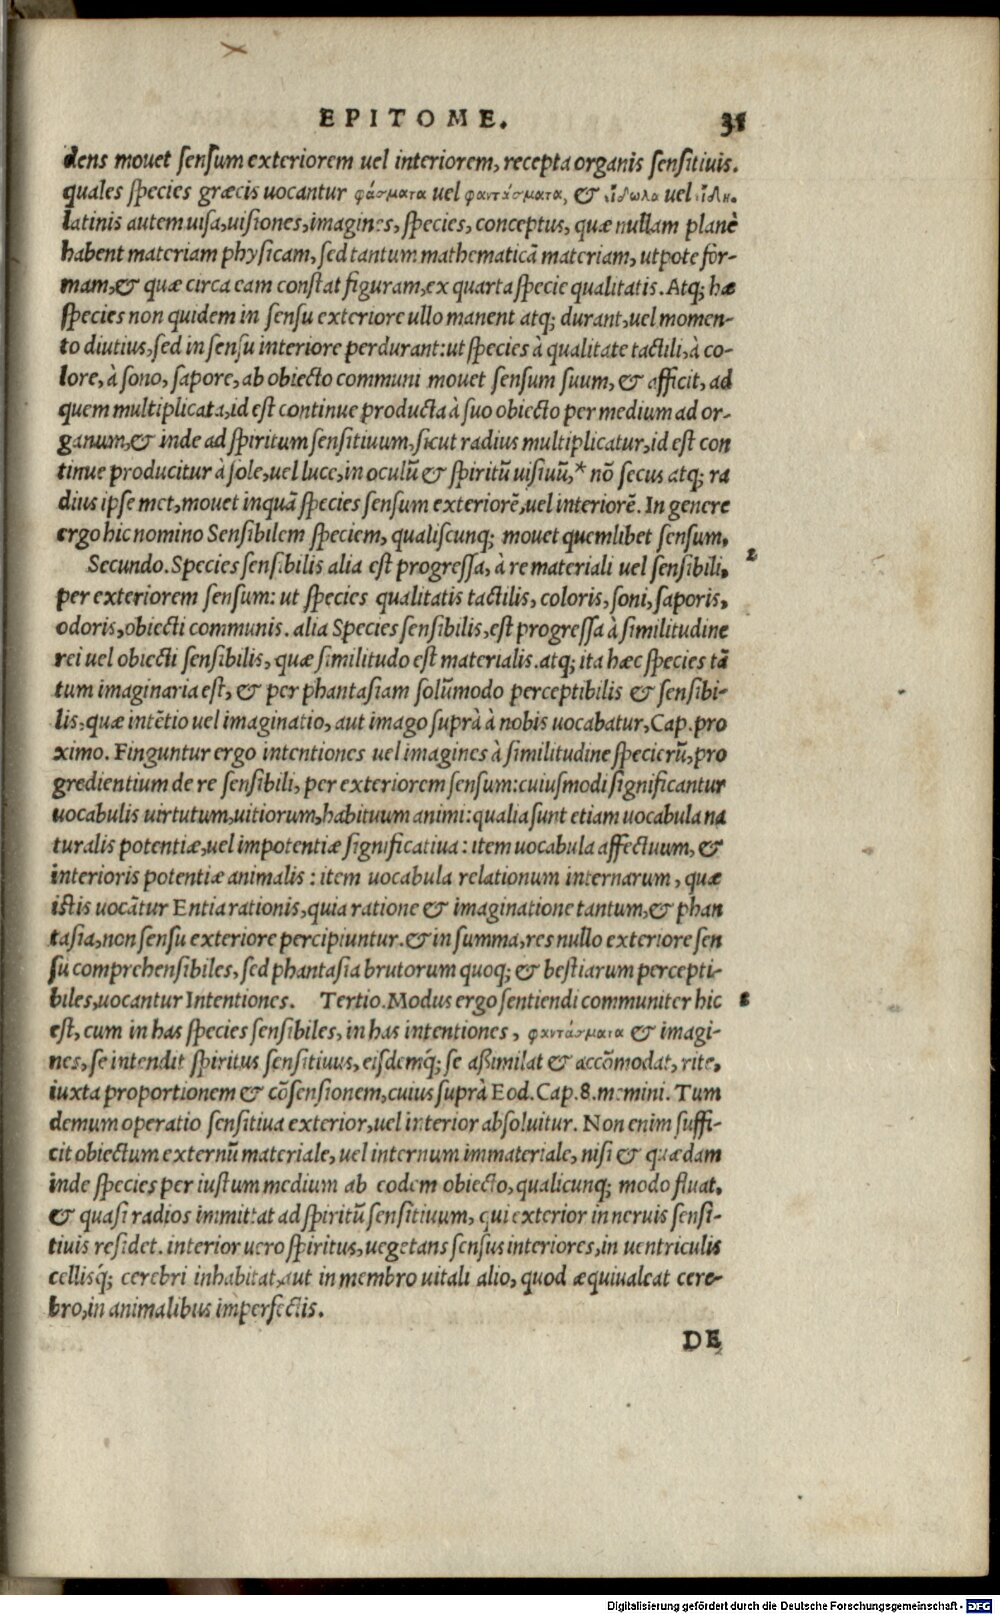 EPITOME. 31
dens mouet sensum exteriorem uel interiorem, recepta organis sensitiuis.
quales species græcis uocantur φάσματα uel φαντάσματα, & εἴδωλα uel εἴδη.
latinis autem uisa, uisiones, imagines, species, conceptus, quæ nullam planè
habent materiam physicam, sed tantum mathematicā materiam, utpote for-
mam, & quæ circa eam constat figuram, ex quarta specie qualitatis. Atq; hæ
species non quidem in sensu exteriore ullo manent atq; durant, uel momen-
to diutius, sed in sensu interiore perdurant: ut species à qualitate tactili, à co-
lore, à sono, sapore, ab obiecto communi mouet sensum suum, & afficit, ad
quem multiplicata, id est continue producta à suo obiecto per medium ad or-
ganum, & inde ad spiritum sensitiuum, sicut radius multiplicatur, id est con
tinue producitur à sole, uel luce, in oculū & spiritū uisiuū,* nō secus atq; ra
dius ipse met, mouet inquā species sensum exteriorē, uel interiorē. In genere
ergo hic nomino Sensibilem speciem, qualiscunq; mouet quemlibet sensum.
Secundo. Species sensibilis alia est progressa, à re materiali uel sensibili, 2
per exteriorem sensum: ut species qualitatis tactilis, coloris, soni, saporis,
odoris, obiecti communis. alia Species sensibilis, est progressa à similitudine
rei uel obiecti sensibilis, quæ similitudo est materialis. atq; ita hæc species tā
tum imaginaria est, & per phantasiam solūmodo perceptibilis & sensibi-
lis, quæ intētio uel imaginatio, aut imago suprà à nobis uocabatur, Cap. pro
ximo. Finguntur ergo intentiones uel imagines à similitudine specierū, pro
gredientium de re sensibili, per exteriorem sensum: cuiusmodi significantur
uocabulis uirtutum, uitiorum, habituum animi: qualia sunt etiam uocabula na
turalis potentiæ, uel impotentiæ significatiua: item uocabula affectuum, &
interioris potentiæ animalis: item uocabula relationum internarum, quæ
istis uocātur Entia rationis, quia ratione & imaginatione tantum, & phan
tasia, non sensu exteriore percipiuntur. & in summa, res nullo exteriore sen
su comprehensibiles, sed phantasia brutorum quoq; & bestiarum percepti-
biles, uocantur Intentiones. Tertio. Modus ergo sentiendi communiter hic
est, cum in has species sensibiles, in has intentiones, φαντάσματα & imagi-
nes, se intendit spiritus sensitiuus, eisdemq́; se aßimilat & accōmodat, rite,
iuxta proportionem & cōsensionem, cuius suprà Eod. Cap. 8. memini. Tum
demum operatio sensitiua exterior, uel interior absoluitur. Non enim suffi-
cit obiectum externū materiale, uel internum immateriale, nisi & quædam
inde species per iustum medium ab eodem obiecto, qualicunq; modo fluat,
& quasi radios immittat ad spiritū sensitiuum, qui exterior in neruis sensi-
tiuis residet. interior uero spiritus, uegetans sensus interiores, in uentriculis
cellisq́; cerebri inhabitat, aut in membro uitali alio, quod æquiualeat cere-
bro, in animalibus imperfectis.
DE
Digitalisierung gefördert durch die Deutsche Forschungsgemeinschaft - DFG